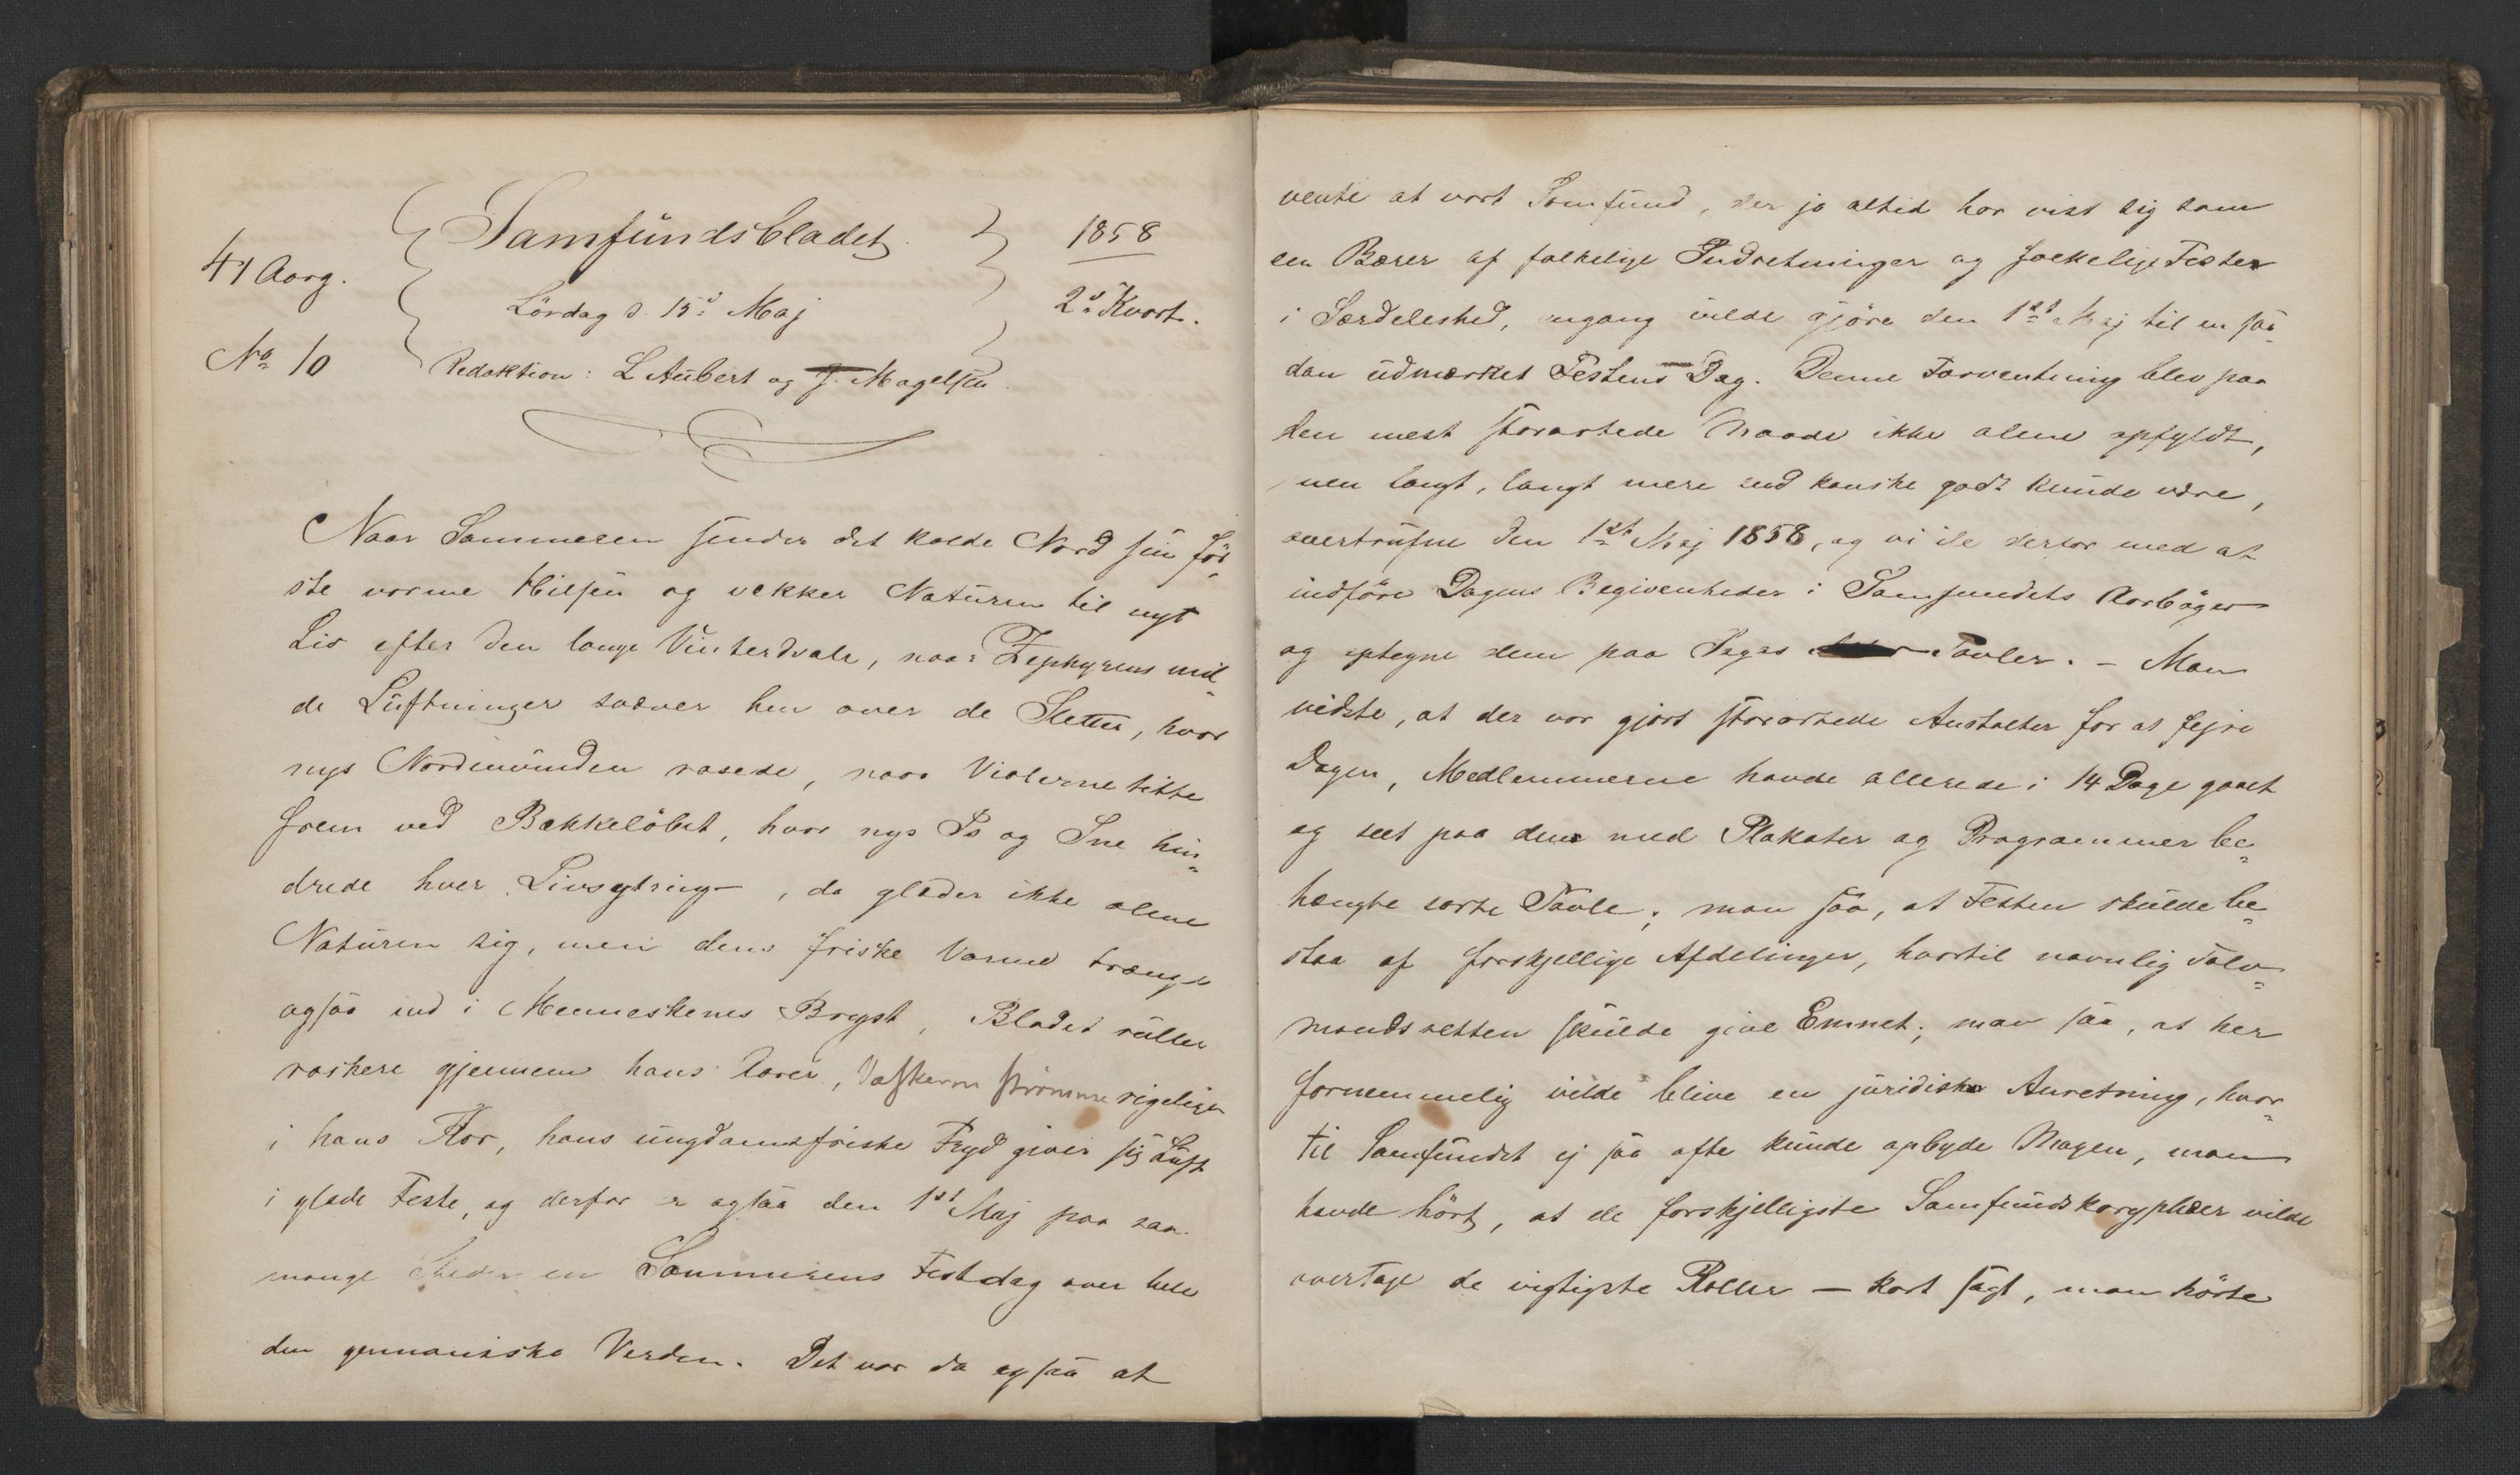 Samfundsbladet
1858
41 Aarg.
Lördag d. 15d Maj
2d Kvart.
No 10
Redaktion: L Aubert og J. Magelsen
Naar Sommeren sender det kolde Nord sin för-
ste varme Hilsen og vekker Naturen til nyt
Liv efter den lange Vinterdvale, naar Zephyrens mil-
de Luftninger svæver hen over de Sletter, hvor
nys Nordenvinden rasede, naar Violerne titte
frem ved Bækkelöbet, hvor nys Is og Sne hin-
drede hver Livsytring, da glæder ikke alene
Naturen sig, men dens friske Varme trænger
ogsaa ind i Menneskenes Bryst, Blodet ruller
raskere gjennem hans Aarer, Væskerne strömme rigeliger
i hans Flor, hans ungdomsfriske Fryd giver sig Luft
i glade Feste, og derfor er ogsaa den 1st Maj paa saa
mange Steder en Sommerens Festdag over hele
den germaniske Verden. Det var da ogsaa at
vente at vort Samfund, der jo altid har vist sig som
en Bærer af folkelige Indretninger og folkelige Fester
i Særdeleshed, engang vilde gjöre den 1st Maj til en saa-
dan udmærket Festens Dag. Denne Forventning blev paa
den mest storartede Maade ikke alene opfyldt,
men langt, langt mere end kanske godt kunde være,
overtrufne den 1st Maj 1858, og vi ile derfor med at
indföre Dagens Begivenheder i Samfundets Aarböger
og optegne dem paa Sagas Tavler. – Man
vidste, at der var gjort storartede Anstalter for at fejre
Dagen, Medlemmerne havde allerede i 14 Dage gaaet
og seet paa den med Plakater og Programmer be-
hængte sorte Tavle; man saa, at Festen skulde be-
staa af forskjellige Afdelinger, hvortil navnlig Tolv-
mandsretten skulde give Emnet; man saa, at her
fornemmelig vilde blive en juridisk Anretning, hvor-
til Samfundet ej saa ofte kunde opbyde Magen, man
havde hört, at de forskjelligste Samfundskoryphæer vilde
overtage de vigtigste Roller – kort sagt, man hörte